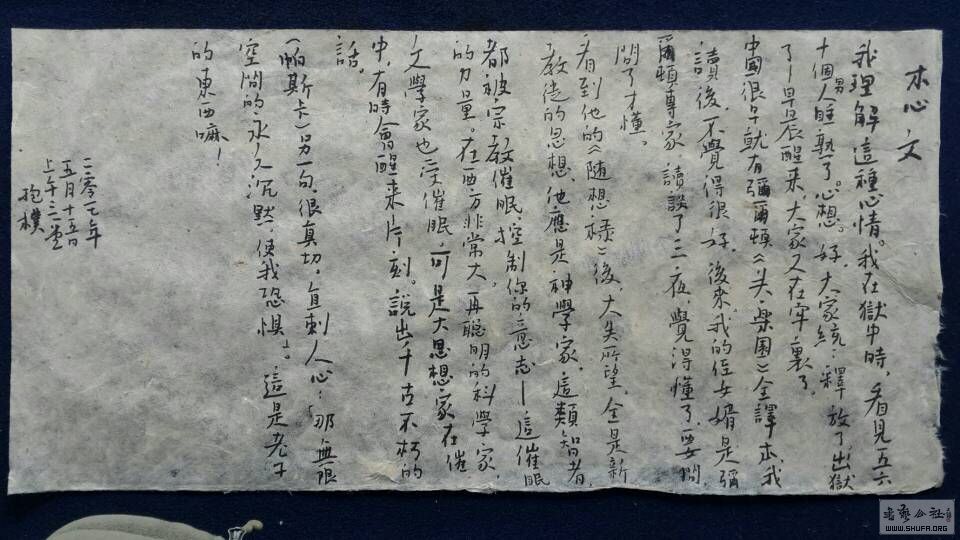 木心文
我理解這種心情。我在獄中時，看見五六
十個男人睡熟了。心想。好，大家統：釋放了出獄
了—早晨醒來，大家又在牢裏了。
中國很早就有彌爾頓《失樂園》全譯本，我
讀後不覺得很好，後來，我的侄女婿是彌
爾頓專家，讀談了三夜，覺得懂了，要問，
問了才懂。
看到他的《隨想祿》後，大失所望，全是新
教徒的思想，他應是神學家，這類智者，
都被宗教催眠，控制你的意志—這催眠
的力量。在西方非常大，再聰明的科學家，
文學家也受催眠，可是大思想家在催
中，有時會醒來片刻。說出千古不朽的
話。
（帕斯卡）另一句，很真切，直刺人心：“那無限
空間的永久沉默，使我恐惧”。這是老子
的東西嘛！
二零一七年
五月十五日
上午三
抱樸
WWW.SHUFA.ORG